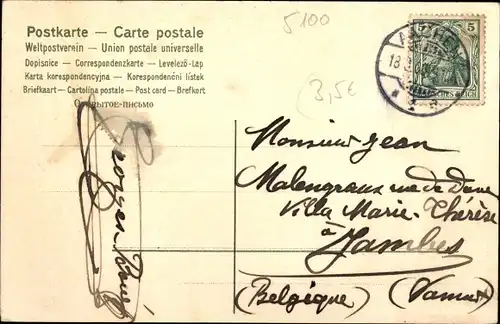 Postkarte — Carte postale
Weltpostverein — Union postale universelle
Dopisnice — Correspondenzkarte — Levelező-Lap
Karta korespondencyjna — Korespondenční lístek
Briefkaart — Cartolina postale — Post card — Brefkort
Открытое-письмо
5100
3,5€
AACHEN
18
5
DEUTSCHES REICH
Monsieur Jean
Malengraux rue de Dave
Villa Marie-Thérèse
à
Jambes
(Belgique) (Namur)
Georges